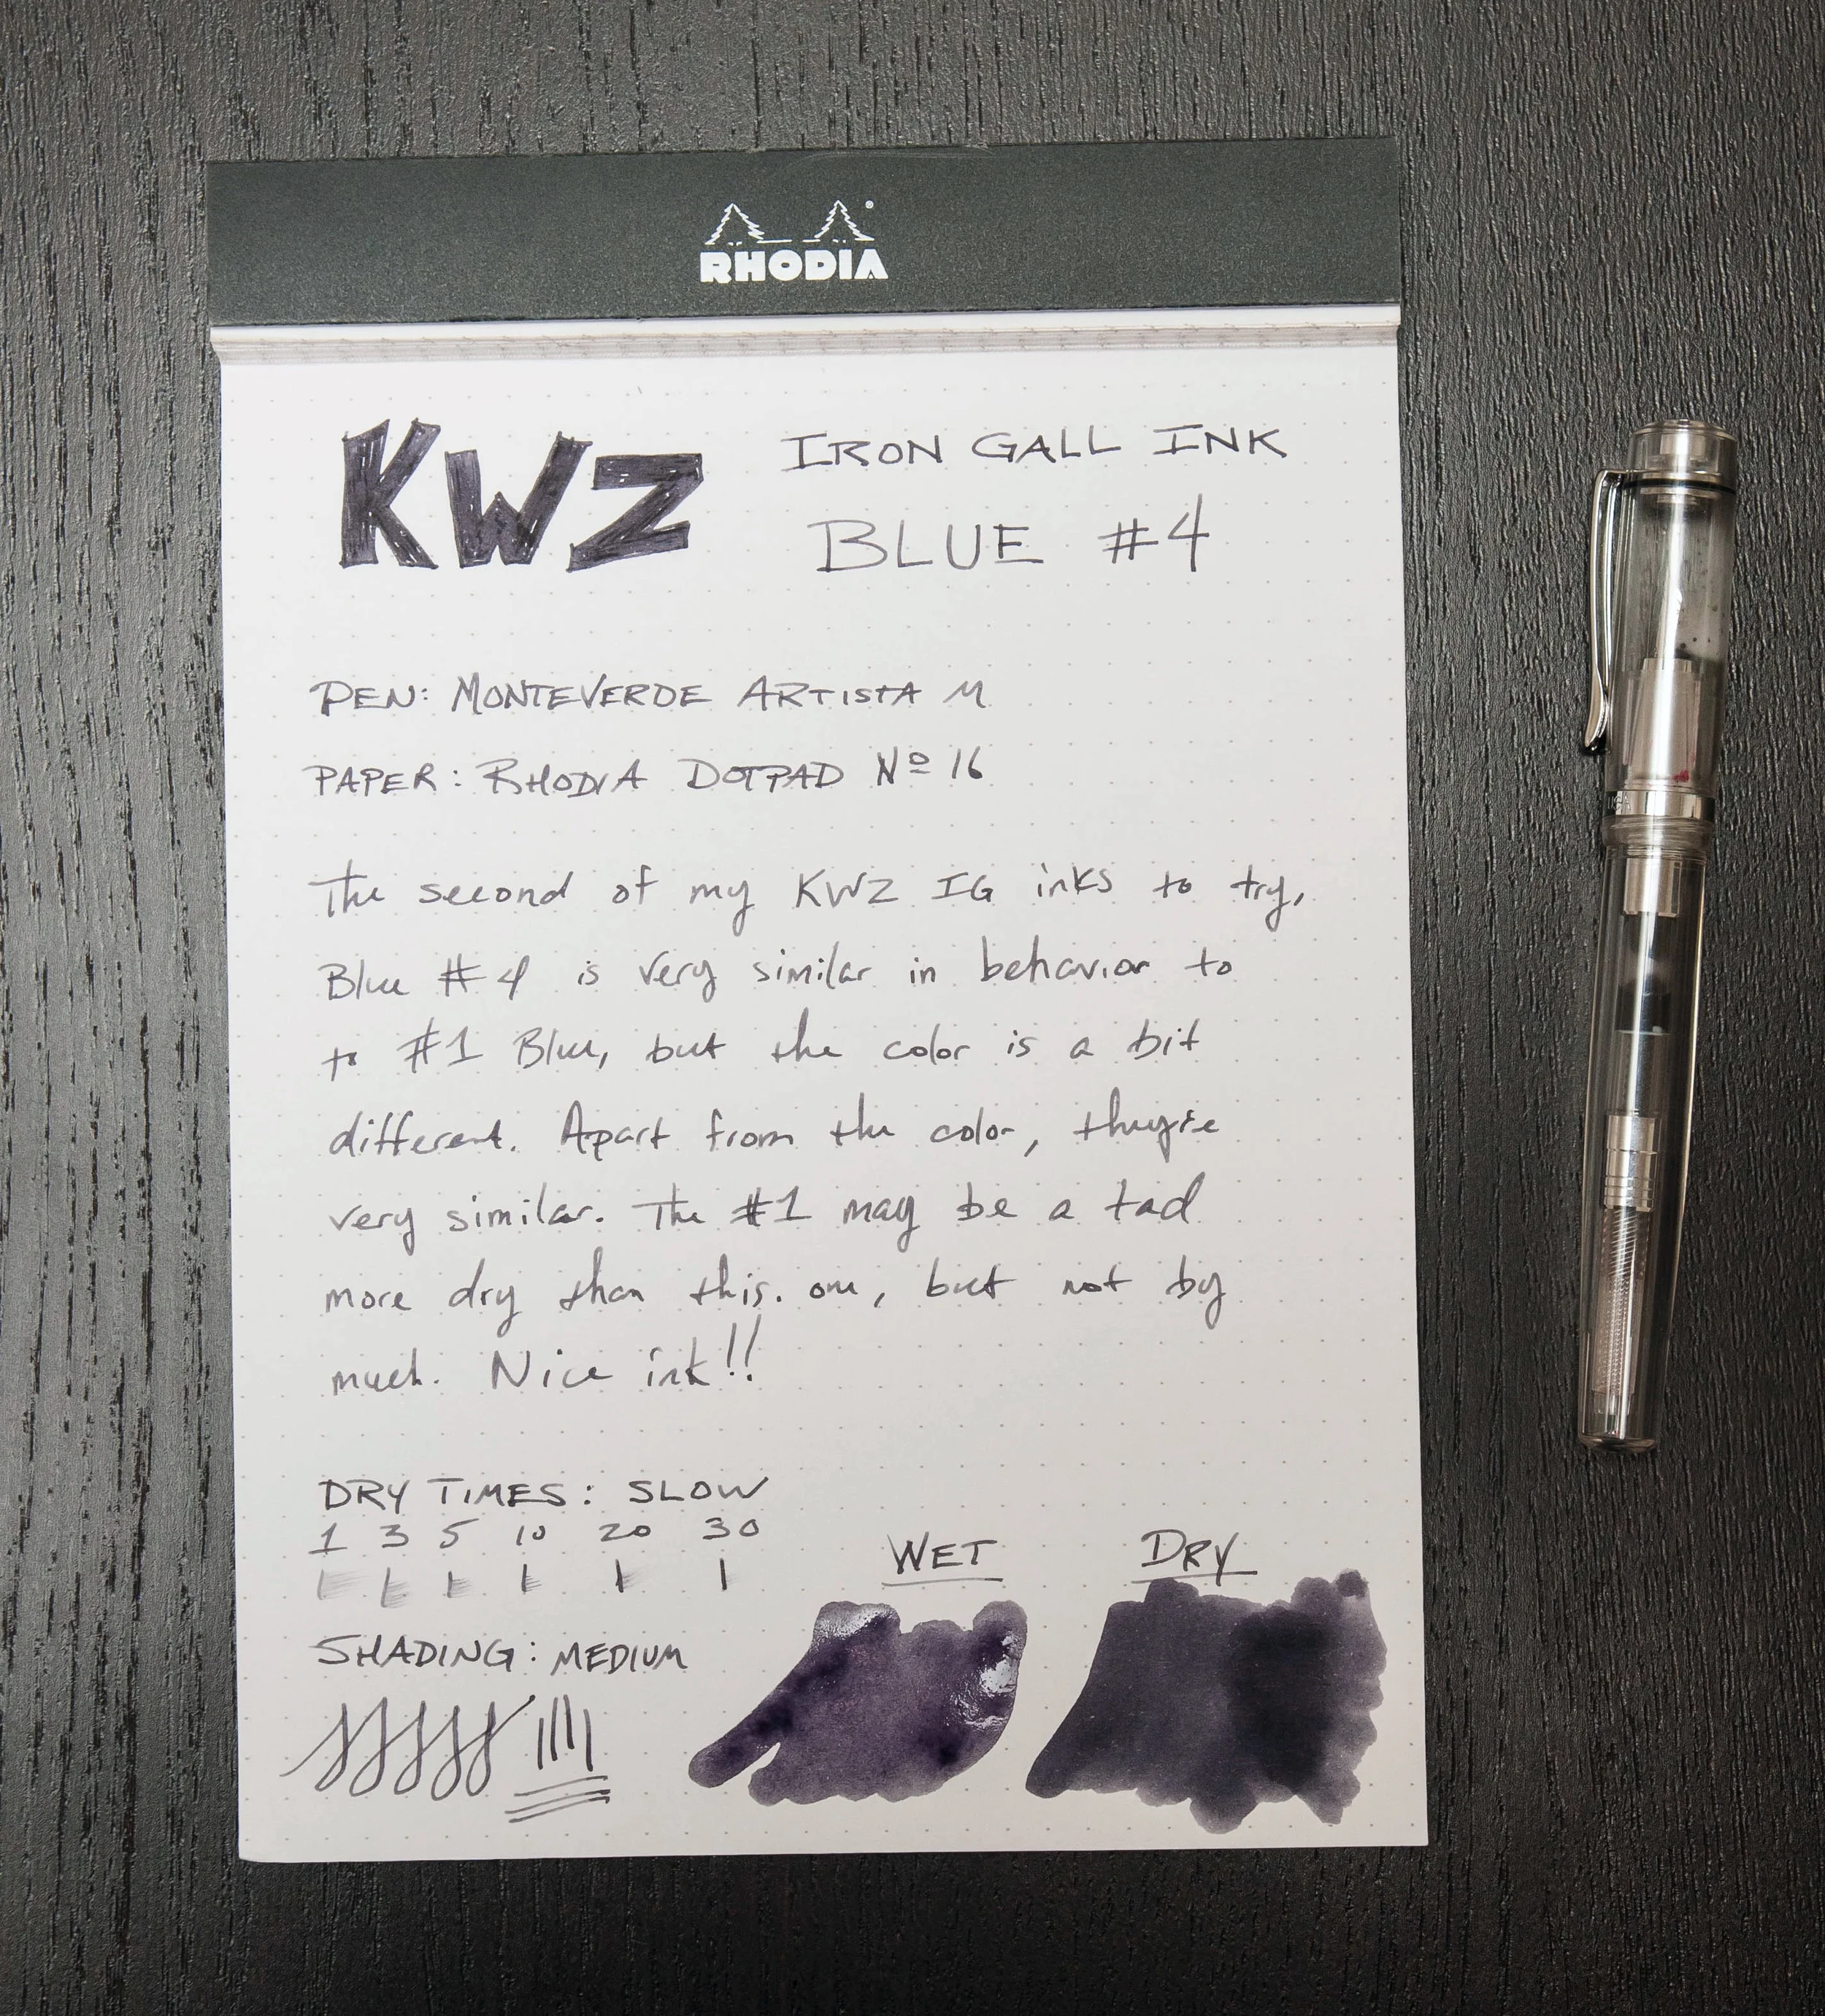 RHODIA
KWZ IRON GALL INK
BLUE #4
PEN: MONTEVERDE ARTISTA M
PAPER: RHODIA DOTPAD Nº 16
The second of my KWZ IG inks to try,
Blue #4 is very similar in behavior to
to #1 Blue, but the color is a bit
different. Apart from the color, they're
very similar. The #1 may be a tad
more dry than this. one, but not by
much. Nice ink!!
DRY TIMES: SLOW
1 3 5 10 20 30
WET DRY
SHADING: MEDIUM